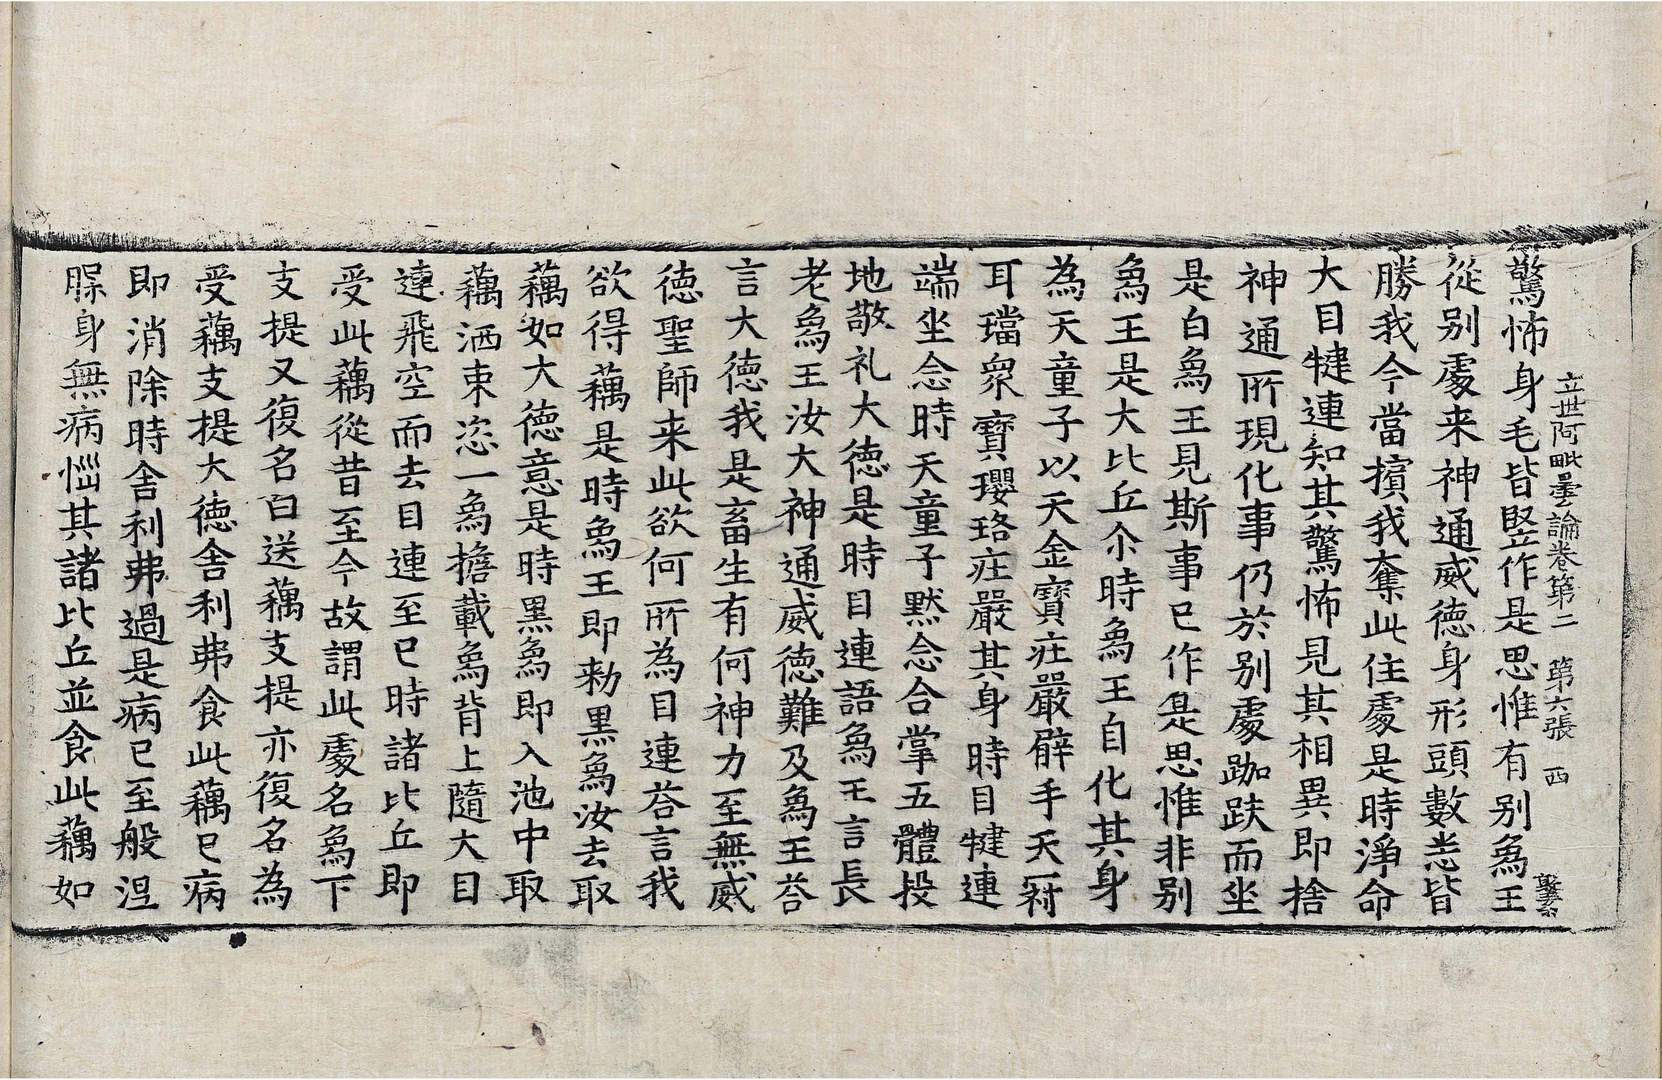 立世阿毗曇論卷第二　第六張　西
驚怖身毛皆竪作是思惟有别爲王
從别處来神通威德身形頭數悉皆
勝我今當擯我奪此住處是時淨命
大目犍連知其驚怖見其相異即捨
神通所現化事仍於别處跏趺而坐
是白爲王見斯事已作是思惟非别
爲王是大比丘尒時爲王自化其身
為天童子以天金寶莊嚴臂手天冠
耳璫衆寶瓔珞莊嚴其身時目犍連
端坐念時天童子默念合掌五體投
地敬礼大德是時目連語爲王言長
老爲王汝大神通威德難及爲王荅
言大德我是畜生有何神力至無威
德聖師来此欲何所為目連荅言我
欲得藕是時爲王即勑黑爲汝去取
藕如大德意是時黒爲即入池中取
藕洒束恣一爲擔載爲背上隨大目
連飛空而去目連至已時諸比丘即
受此藕從昔至今故謂此處名爲下
支提又復名曰送藕支提亦復名為
受藕支提大德舍利弗食此藕已病
即消除時舍利弗過是病已至般涅
脲身無病惱其諸比丘並食此藕如